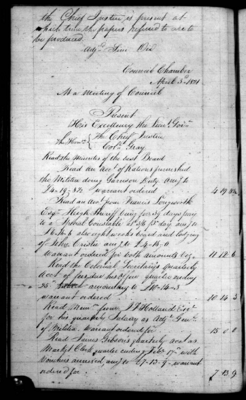 the Chief Justice is present at
which time the papers referred to are to
be produced.
Adjd Sine Die
Council Chamber
April 3d 1831
At a Meeting of Council
Present
His Excellency the Lieut Govr
The Honble The Chief Justice
Colo Gray
Read the Minutes of the last Board
Read an acct of Rations furnished
the Militia doing Garrison Duty amtg to
£4.19.3½ warrant ordered 4 19 3½
Read an acct from Francis Longworth
Esqr High Sheriff being forty days pay
to a
and eight weeks board and lodging
of amtg to £4.16.0
Warrant ordered for both amounts 11 12 6
Read the Colonial Secretarys quarterly
acct of for quarter ending
amounting to £10.14.3
warrant ordered 10 14 3
Read Memo from J F Holland Esqr
for his quarters Salary as Adjt Genl
of Militia warrant ordered for 15 0 0
Read James Gibson's quarterly acct as
Market Clerk quarter ending with
Vouchers annexed, amtg to £7.13.9 warrant
ordered for 7 13 9